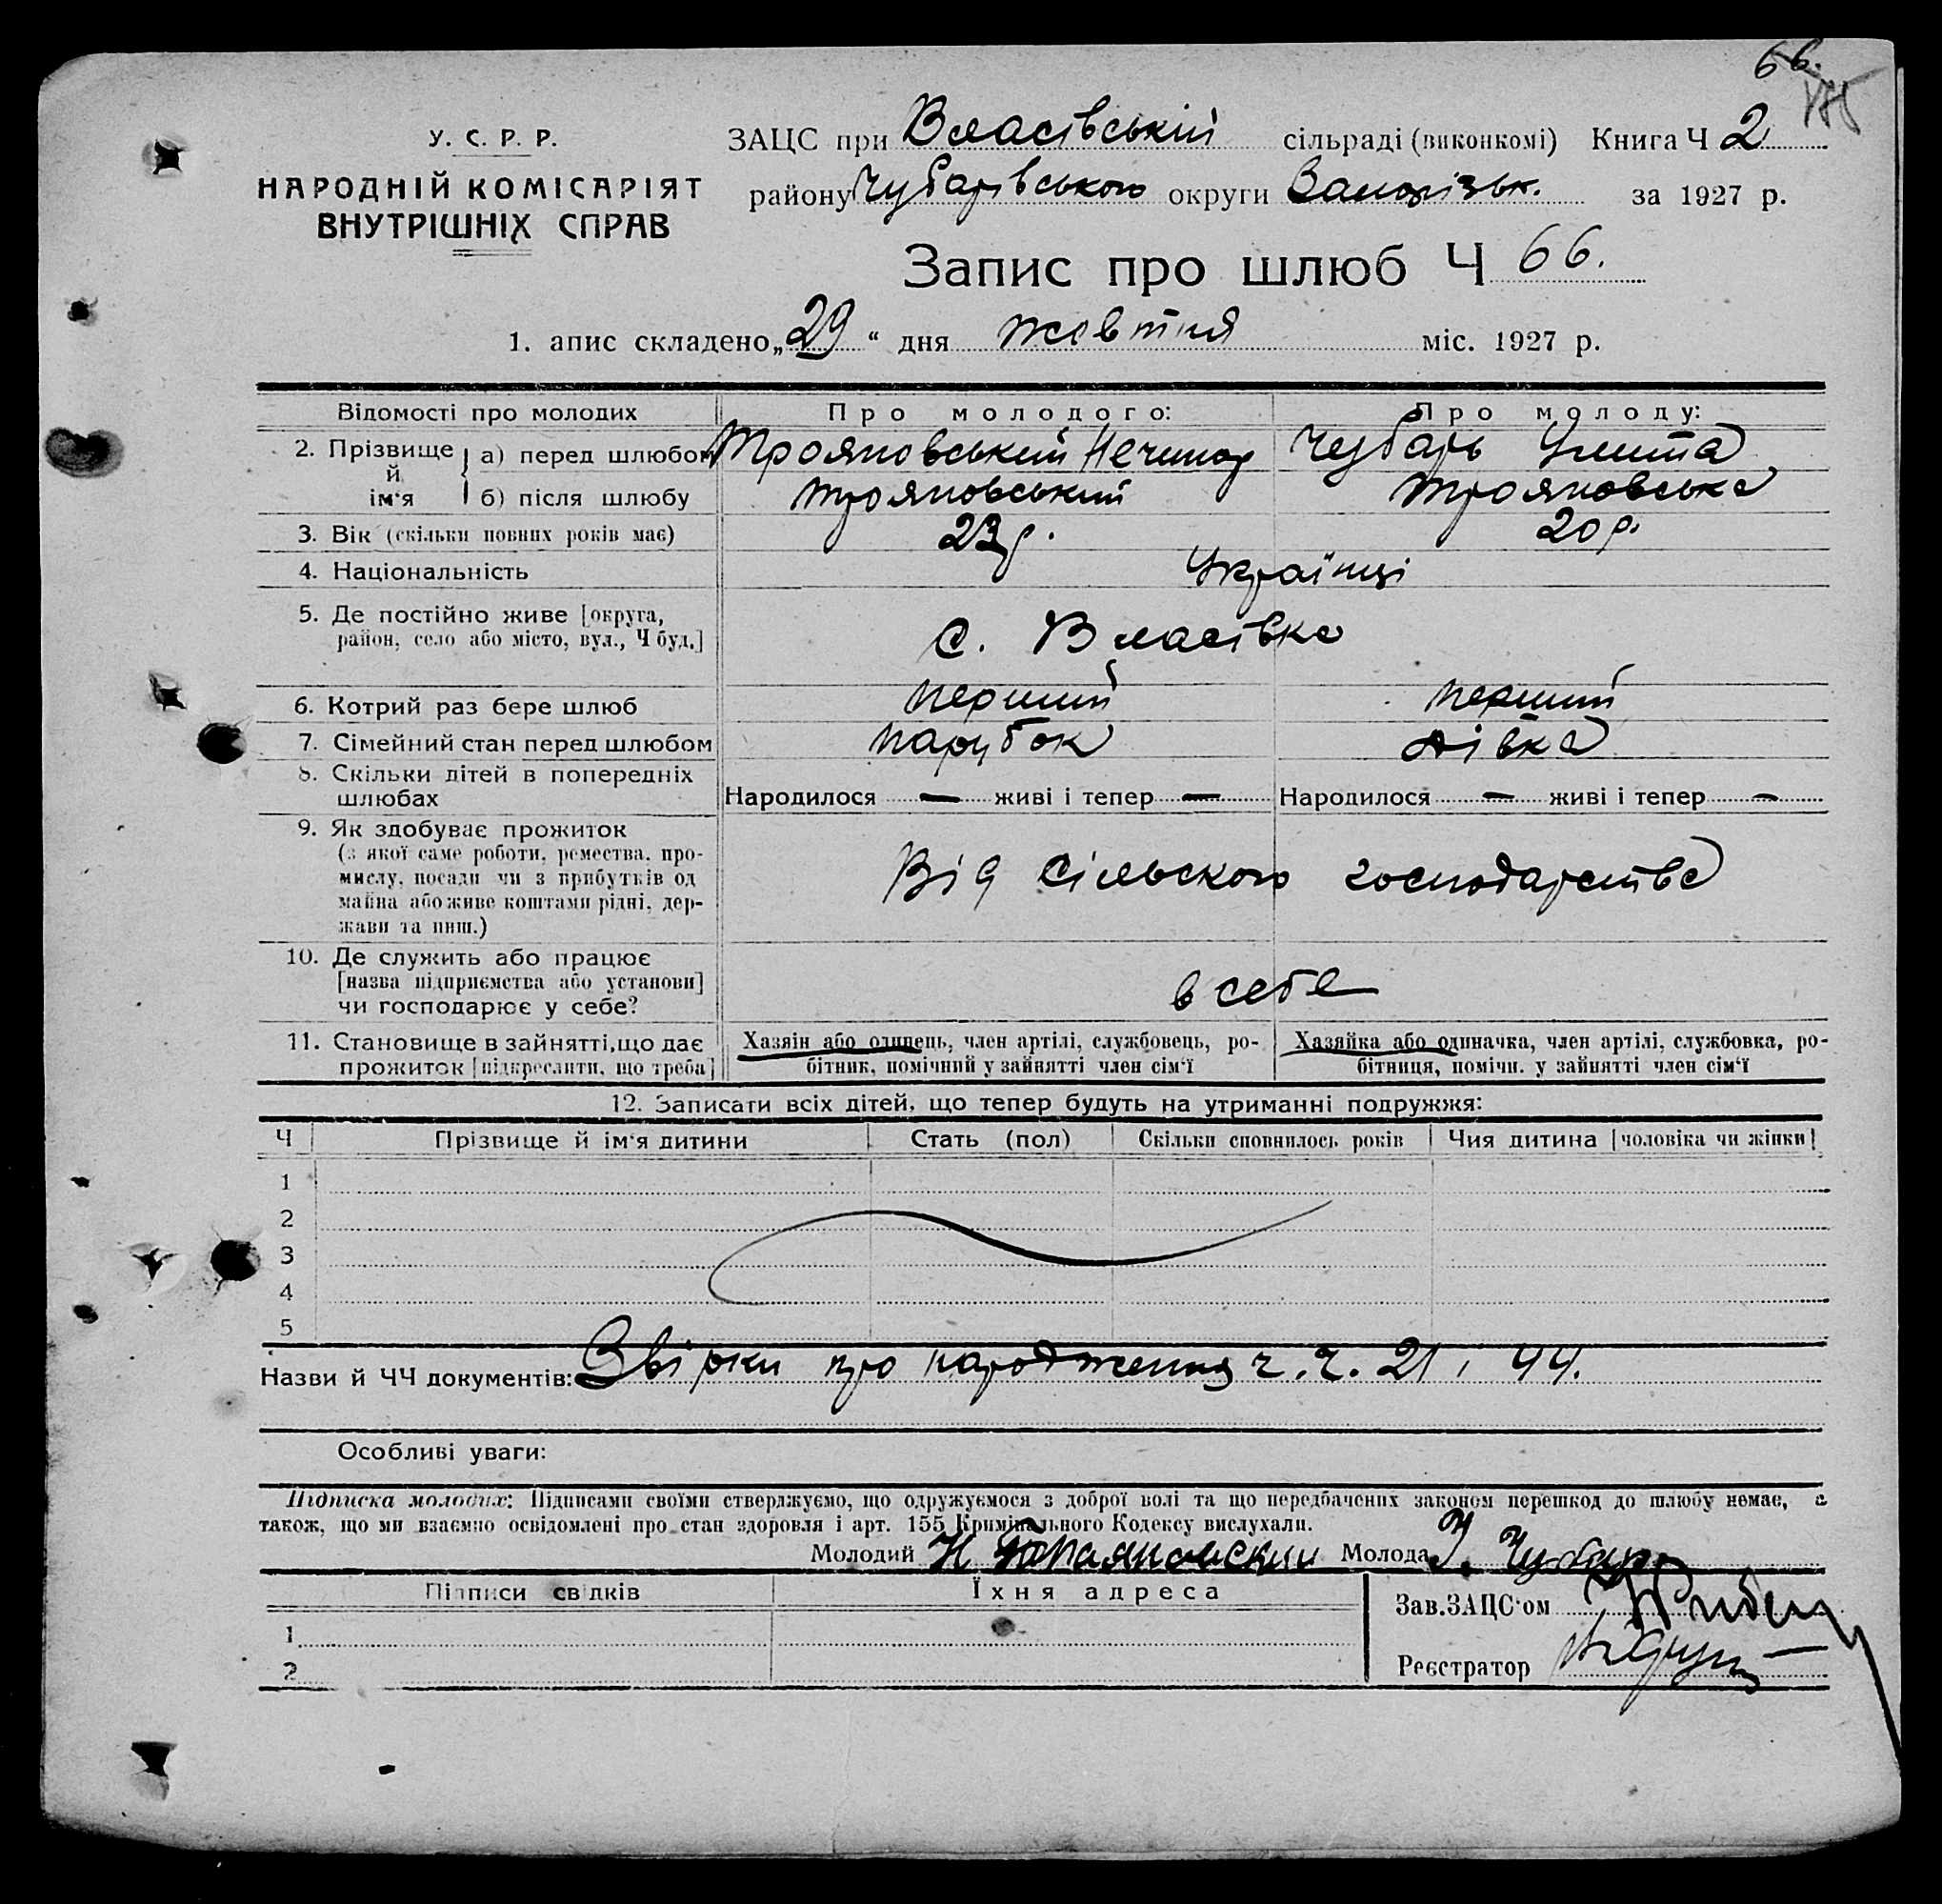 66.
185
У. С. Р. Р.
НАРОДНІЙ КОМІСАРІЯТ
ВНУТРІШНІХ СПРАВ
ЗАЦС при Власівській сільраді (виконкомі) Книга Ч 2
району Чубарівського округи Запорізьк. за 1927 р.
Запис про шлюб Ч 66.
1. апис складено „29“ дня жовтня міс. 1927 р.
Відомості про молодих
Про молодого:
Про молоду:
2. Прізвище й ім'я
а) перед шлюбом Трояновський Нечипор Чубарь Улита
б) після шлюбу Трояновський Трояновська
3. Вік (скільки повних років має) 23 р. 20 р.
4. Національність Українці
5. Де постійно живе [округа,
район, село або місто, вул., Ч буд.] с. Власівка
6. Котрий раз бере шлюб перший перший
7. Сімейний стан перед шлюбом парубок дівка
8. Скільки дітей в попередніх
шлюбах Народилося — живі і тепер — Народилося — живі і тепер —
9. Як здобуває прожиток
(з якої саме роботи, ремества, про-
мислу, посади чи з прибутків од
майна або живе коштами рідні, дер-
жави та инш.)
Від сільского господарства
10. Де служить або працює
[назва підприємства або установи]
чи господарює у себе?
в себе
11. Становище в зайнятті, що дає
прожиток [підкреслити, що треба]
Хазяїн або одинець, член артілі, службовець, ро-
бітник, помічний у зайнятті член сім'ї
Хазяйка або одиначка, член артілі, службовка, ро-
бітниця, помічн. у зайнятті член сім'ї
12. Записати всіх дітей, що тепер будуть на утриманні подружжя:
Ч Прізвище й ім'я дитини Стать (пол) Скільки сповнилось років Чия дитина [чоловіка чи жінки]
1
2
3
4
5
Назви й ЧЧ документів: Звірки про народження ч.ч. 21 і 44.
Особливі уваги:
Підписка молодих: Підписами своїми стверджуємо, що одружуємося з доброї волі та що передбачених законом перешкод до шлюбу немає, а
також, що ми взаємно освідомлені про стан здоровля і арт. 155 Кримінального Кодексу вислухали.
Молодий Н Трояновский Молода У. Чубарь
Підписи свідків Їхня адреса
1
2
Зав. ЗАЦС'ом
Реєстратор